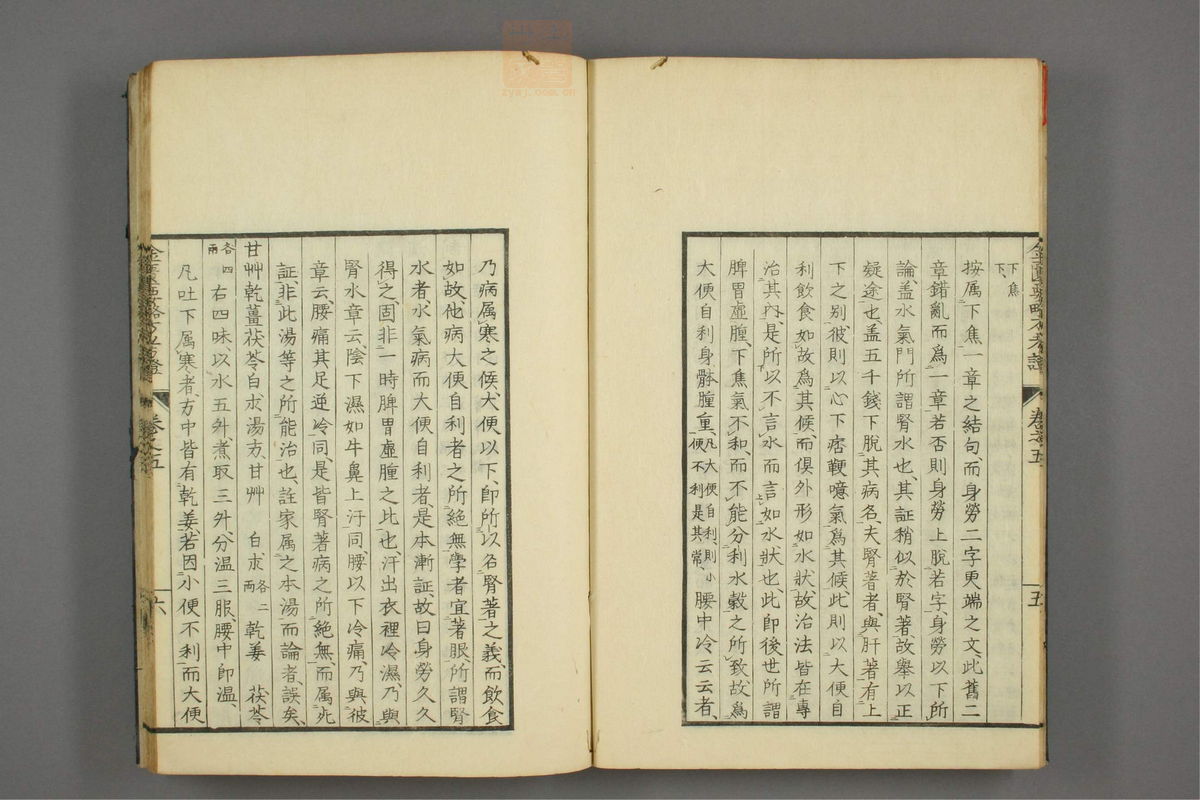 下焦
下、
按属下焦一章之結句、而身勞二字更端之文、此舊二
章錯亂而爲一章若否則身勞上脫若字、身勞以下所
論、盖水氣門所謂腎水也、其証稍似於腎著、故舉以正
疑途也盖五千錢下脫其病名、夫腎著者、與肝著有上
下之別、彼則以心下痞鞕噫氣爲其候、此則以大便自
利飲食如故爲其候、而俱外形如水狀、故治法皆在專
治其內、是所以不言水而言如水狀也、此即後世所謂
脾胃虛腫、下焦氣不和、而不能分利水穀之所致故爲
大便自利身體腫重、凡大便自利、則小便不利是其常、腰中冷云云者、
卷之五
五
乃病属寒之候、大便以下、即所以名腎著之義、而飲食
如故、他病大便自利者之所絕無、學者宜著眼、所謂腎
水者、水氣病而大便自利者、是本漸証、故曰身勞久久
得之、固非一時脾胃虛腫之比也、汗出衣裡冷濕、乃與
腎水章云、陰下濕如牛鼻上汗同、腰以下冷痛、乃與彼
章云、腰痛其足逆冷同、是皆腎著病之所絕無、而属死
証、非此湯等之所能治也、註家属之本湯而論者、誤矣、
甘艸乾薑茯苓白朮湯方、甘艸 白朮各二兩 乾姜 茯苓
各四兩 右四味、以水五升、煮取三升、分溫三服、腰中即溫、
凡吐下属寒者、方中皆有乾姜、若因小便不利而大便
卷之五
六
zysj.com.cn